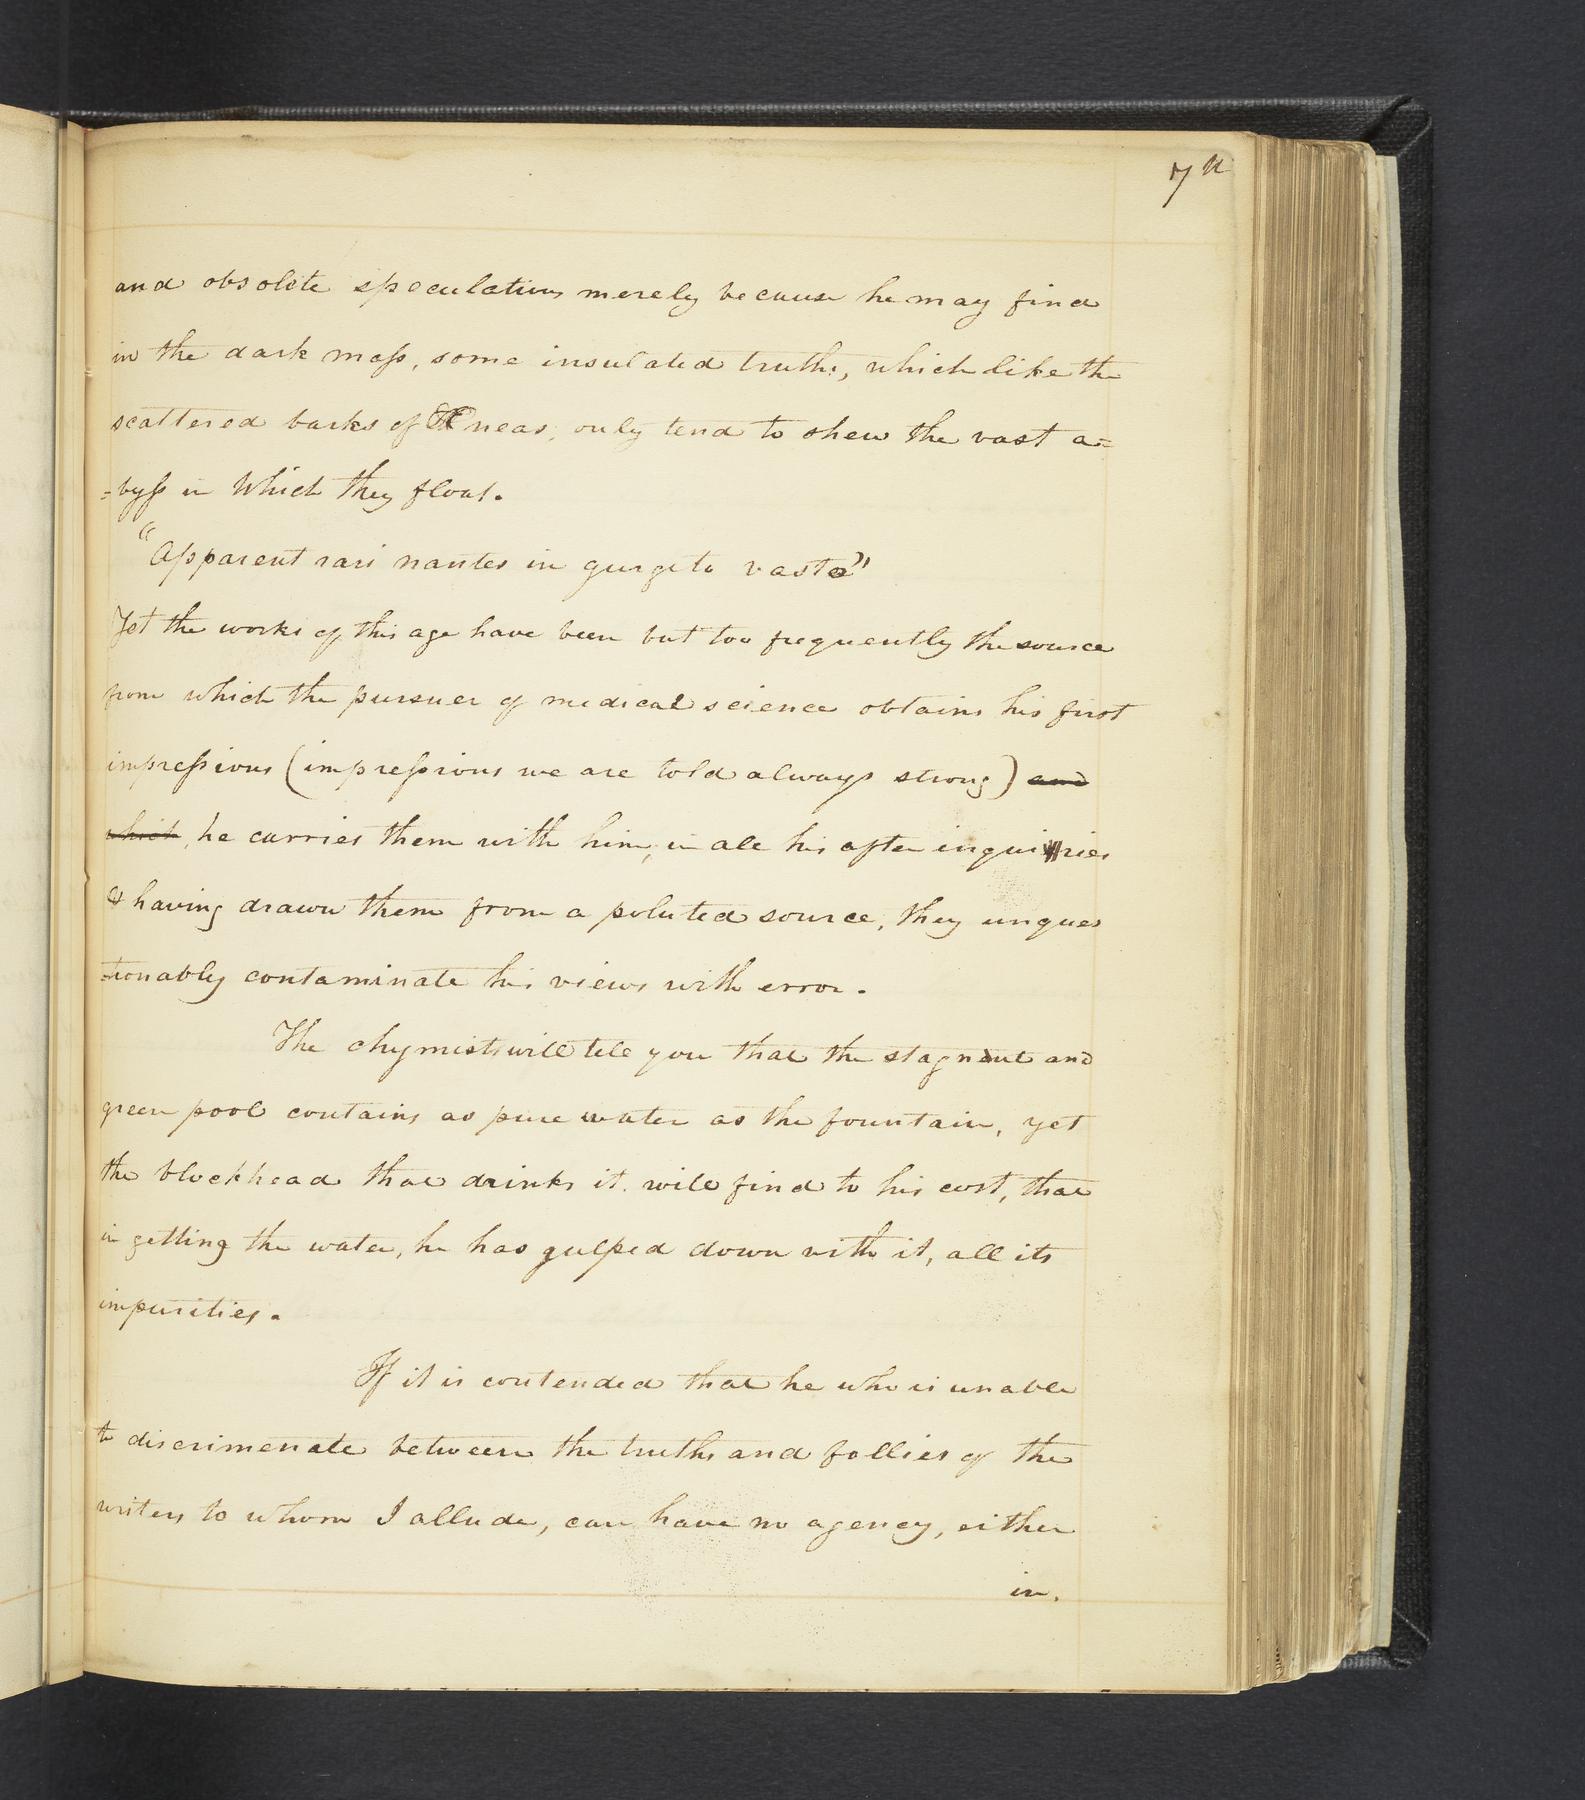 7th
and obsolete speculations merely because he may find
in the dark mass, some insulated truths, which like the
scattered barks of Æneas, only tend to shew the vast a=
=byss in which they float.
"Apparent rari nantes in gurgite vasto"
Yet the works of this age have been but too frequently the source
from which the pursuer of medical science obtains his first
impressions (impressions we are told always strong) and
which, he carries them with him, in all his after inquiries
& having drawn them from a poluted source, they unques
=tionably contaminate his views with error.
The chymists will tell you that the stagnant and
green pool contains as pure water as the fountain, yet
the blockhead that drinks it will find to his cost, that
in getting the water, he has gulped down with it, all its
impurities.
If it is contended that he who is unable
to discrimenate between the truths and follies of the
writers to whom I allude, can have no agency, either
in.